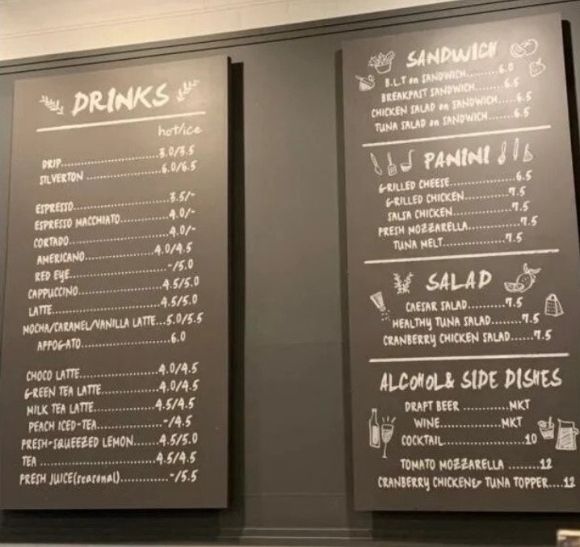 DRINKS
hot/ice
DRIP....................3.0/3.5
SILVERTON ...............6.0/6.5
ESPRESSO.................3.5/-
ESPRESSO MACCHIATO..........4.0/-
CORTADO....................4.0/-
AMERICANO..............4.0/4.5
RED EYE....................-/5.0
CAPPUCCINO...............4.5/5.0
LATTE.....................4.5/5.0
MOCHA/CARAMEL/VANILLA LATTE...5.0/5.5
AFFOGATO..................6.0
CHOCO LATTE................4.0/4.5
GREEN TEA LATTE............4.0/4.5
MILK TEA LATTE.............4.5/4.5
PEACH ICED-TEA.............-/4.5
FRESH-SQUEEZED LEMON.......4.5/5.0
TEA ......................4.5/4.5
FRESH JUICE(seasonal)...........-/5.5
SANDWICH
B.L.T on SANDWICH........6.0
BREAKFAST SANDWICH.......6.5
CHICKEN SALAD on SANDWICH.....6.5
TUNA SALAD on SANDWICH......6.5
PANINI
GRILLED CHEESE..............6.5
GRILLED CHICKEN...........7.5
SALSA CHICKEN..............7.5
FRESH MOZZARELLA..........7.5
TUNA MELT...............7.5
SALAD
CAESAR SALAD.........7.5
HEALTHY TUNA SALAD.......7.5
CRANBERRY CHICKEN SALAD......7.5
ALCOHOL& SIDE DISHES
DRAFT BEER ..........MKT
WINE...............MKT
COCKTAIL.................10
TOMATO MOZZARELLA ........12
CRANBERRY CHICKEN& TUNA TOPPER....12